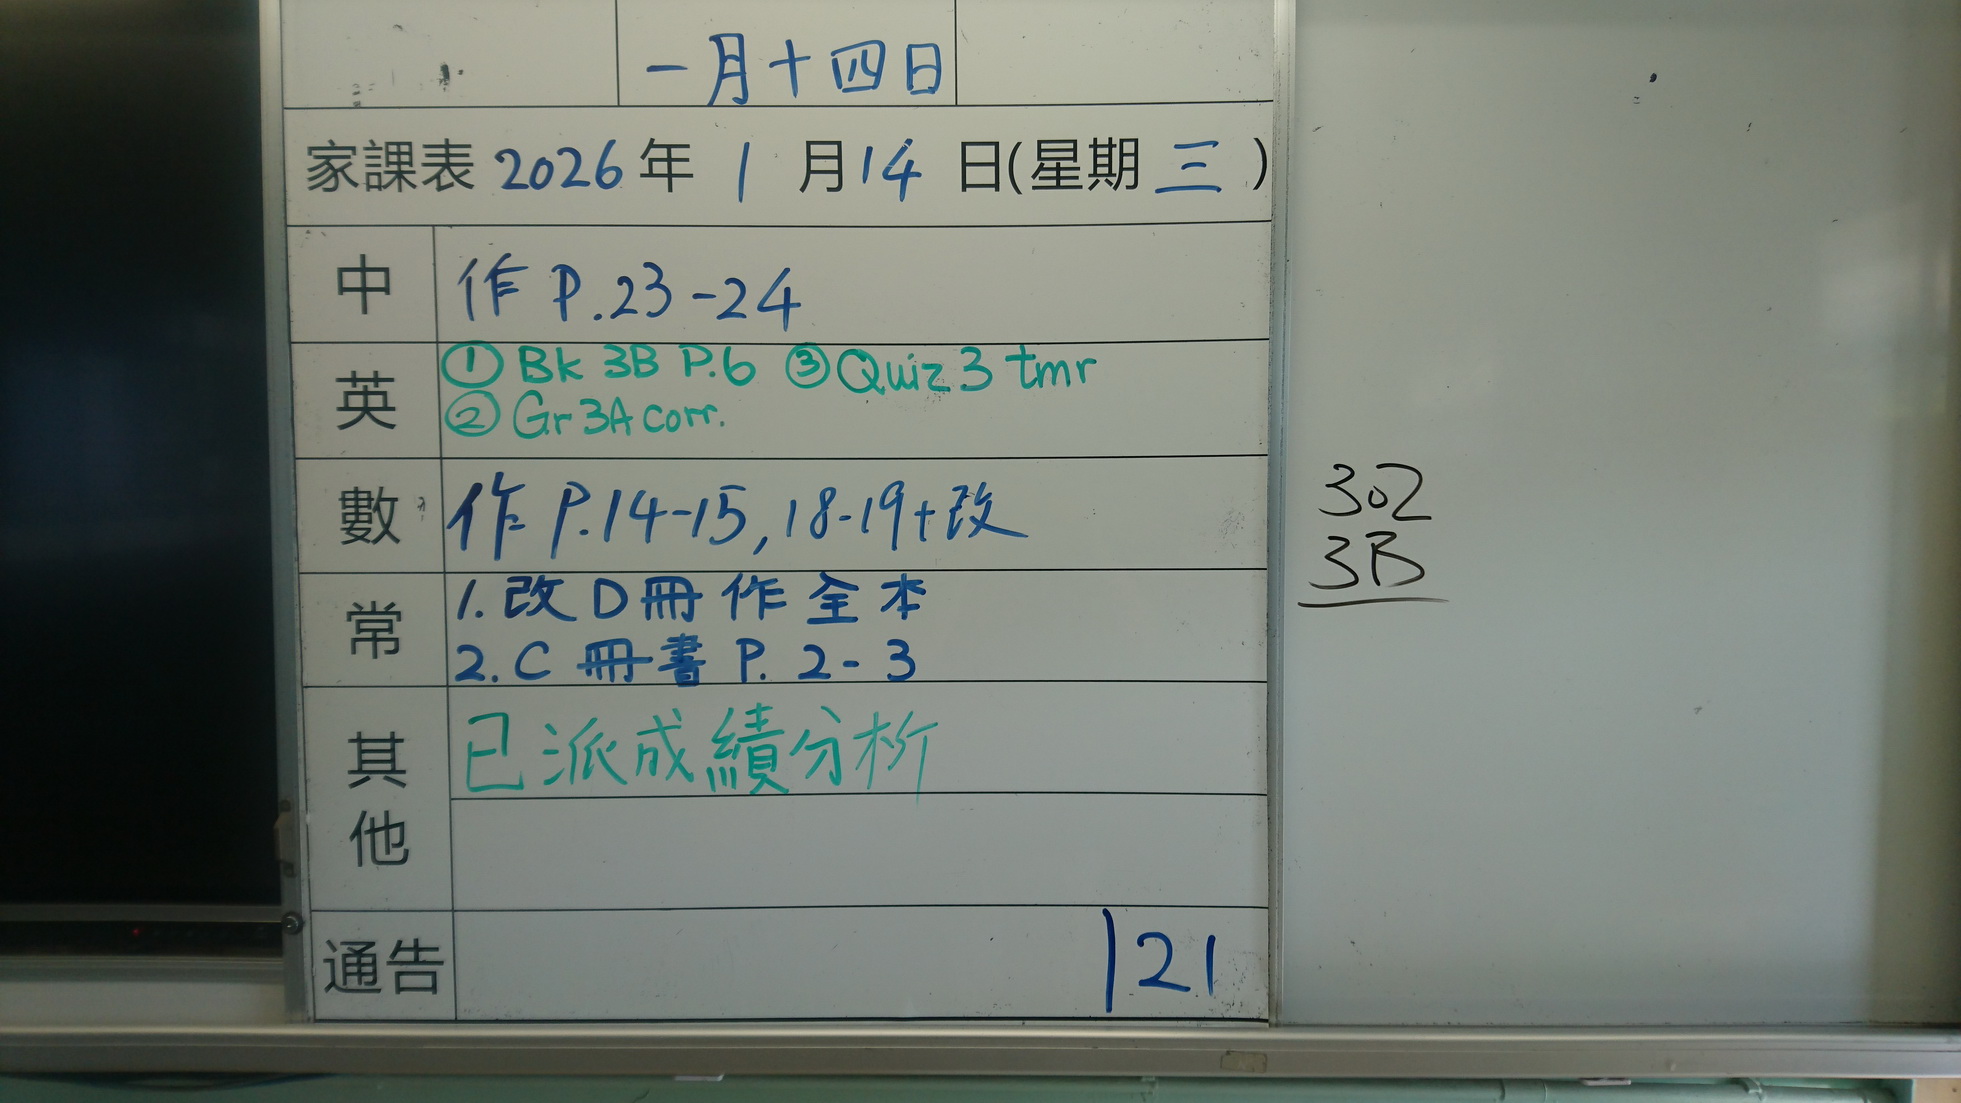 一月十四日
家課表 2026年 1月14日(星期三)
中 作 P.23-24
英 ① Bk 3B P.6 ③ Quiz 3 tmr
② Gr 3A corr.
數 作 P.14-15, 18-19+改
常 1. 改D冊作全本
2. C冊書 P. 2-3
其他 已派成績分析
通告 121
302
3B